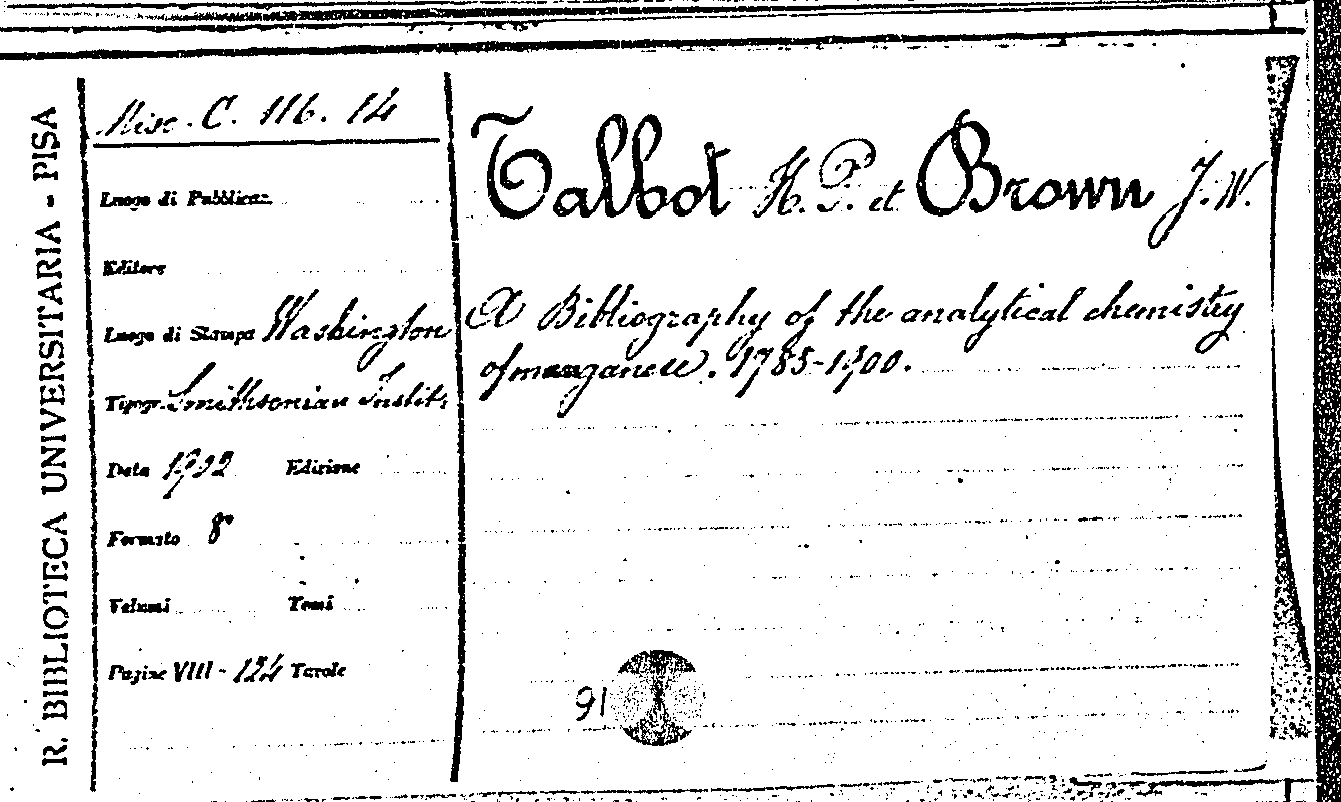 R. BIBLIOTECA UNIVERSITARIA - PISA
Misc. C. 116. 14
Luogo di Pubblicaz.
Editore
Luogo di Stampa Washington
Tipogr. Smithsonian Instit.
Data 1902 Edizione
Formato 8°
Volumi Tomi
Pagine VIII - 124 Tavole
Talbot H. P. et Brown J. W.
A Bibliography of the analytical chemistry
of manganese. 1785-1900.
91